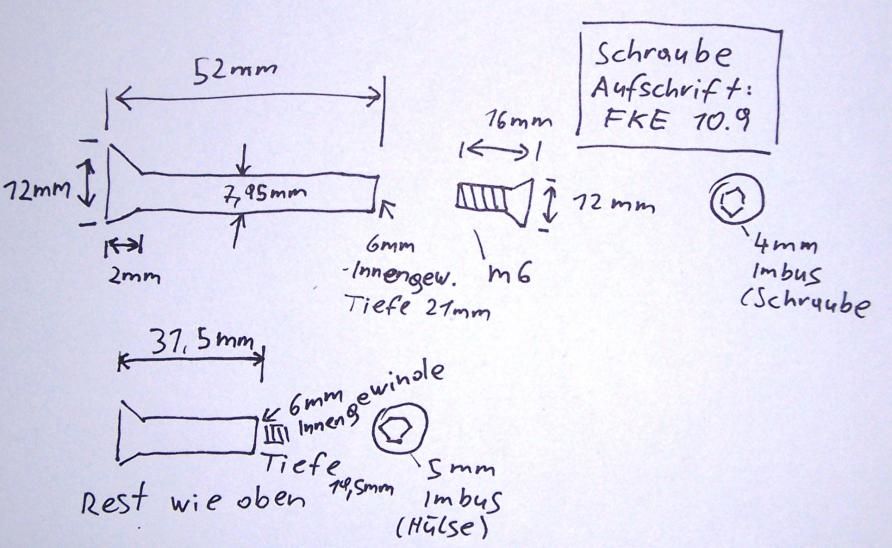 52mm
Schraube
Aufschrift:
FKE 10.9
16mm
12mm
7,95mm
12mm
2mm
6mm
-Innengew.
Tiefe 21mm
m6
4mm
Imbus
(Schraube
31,5mm
6mm
Innengewinde
Tiefe
19,5mm
5mm
Imbus
(Hülse)
Rest wie oben